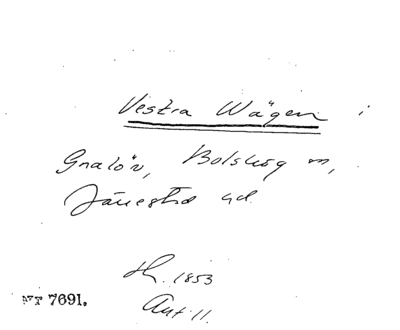 Vestra Wägen i
Gnalöv, Bolshög m,
Järrestad hd.
Lh. 1853
Akt 11.
NT 7691.